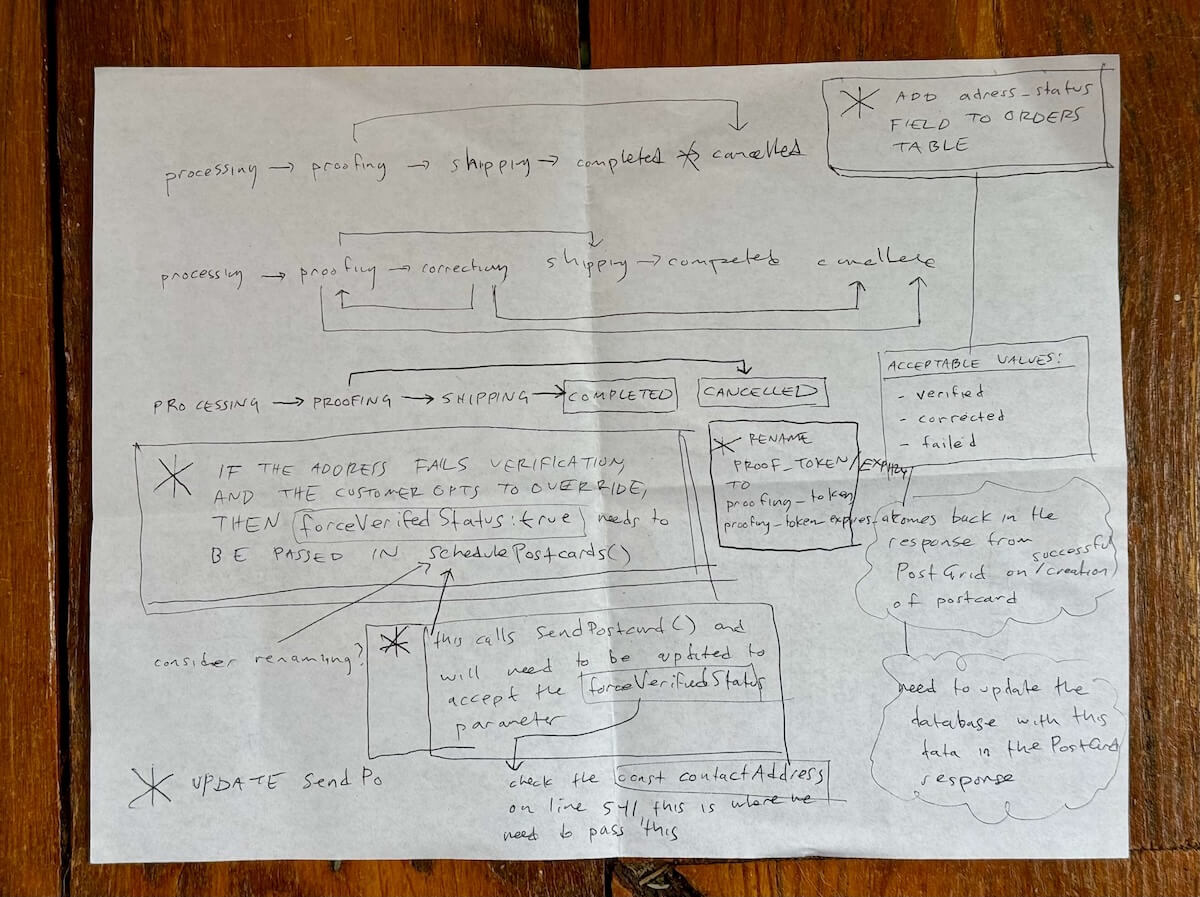 ADD adress_status
FIELD TO ORDERS
TABLE
processing → proofing → shipping → completed cancelled
processing → proofing → correcting shipping → completed cancelled
PROCESSING → PROOFING → SHIPPING → COMPLETED CANCELLED
ACCEPTABLE VALUES:
- verified
- corrected
- failed
IF THE ADDRESS FAILS VERIFICATION,
AND THE CUSTOMER OPTS TO OVERRIDE,
THEN forceVerifedStatus:true needs to
BE PASSED IN schedulePostcards()
RENAME
PROOF_TOKEN/EXPIRY
TO
proofing_token
proofing_token_expires_at
comes back in the
response from
PostGrid on successful creation
of postcard
consider renaming?
this calls sendPostcard() and
will need to be updated to
accept the forceVerifiedStatus
parameter
need to update the
database with this
data in the PostCard
response
UPDATE sendPo
check the const contactAddress
on line 541, this is where we
need to pass this